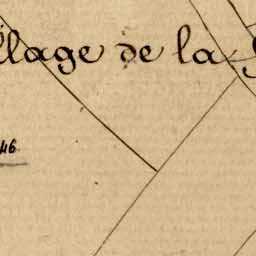 llage de la
46